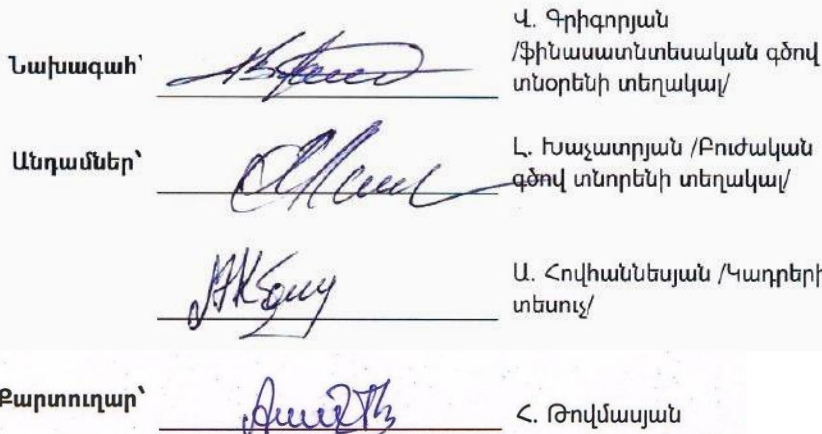 Նախագահ՝
Վ. Գրիգորյան
/ֆինասատնտեսական գծով
տնօրենի տեղակալ/
Անդամներ՝
Լ. Խաչատրյան /Բուժական
գծով տնորենի տեղակալ/
Ա. Հովհաննեսյան /Կադրերի
տեսուչ/
Քարտուղար՝
Հ. Թովմասյան